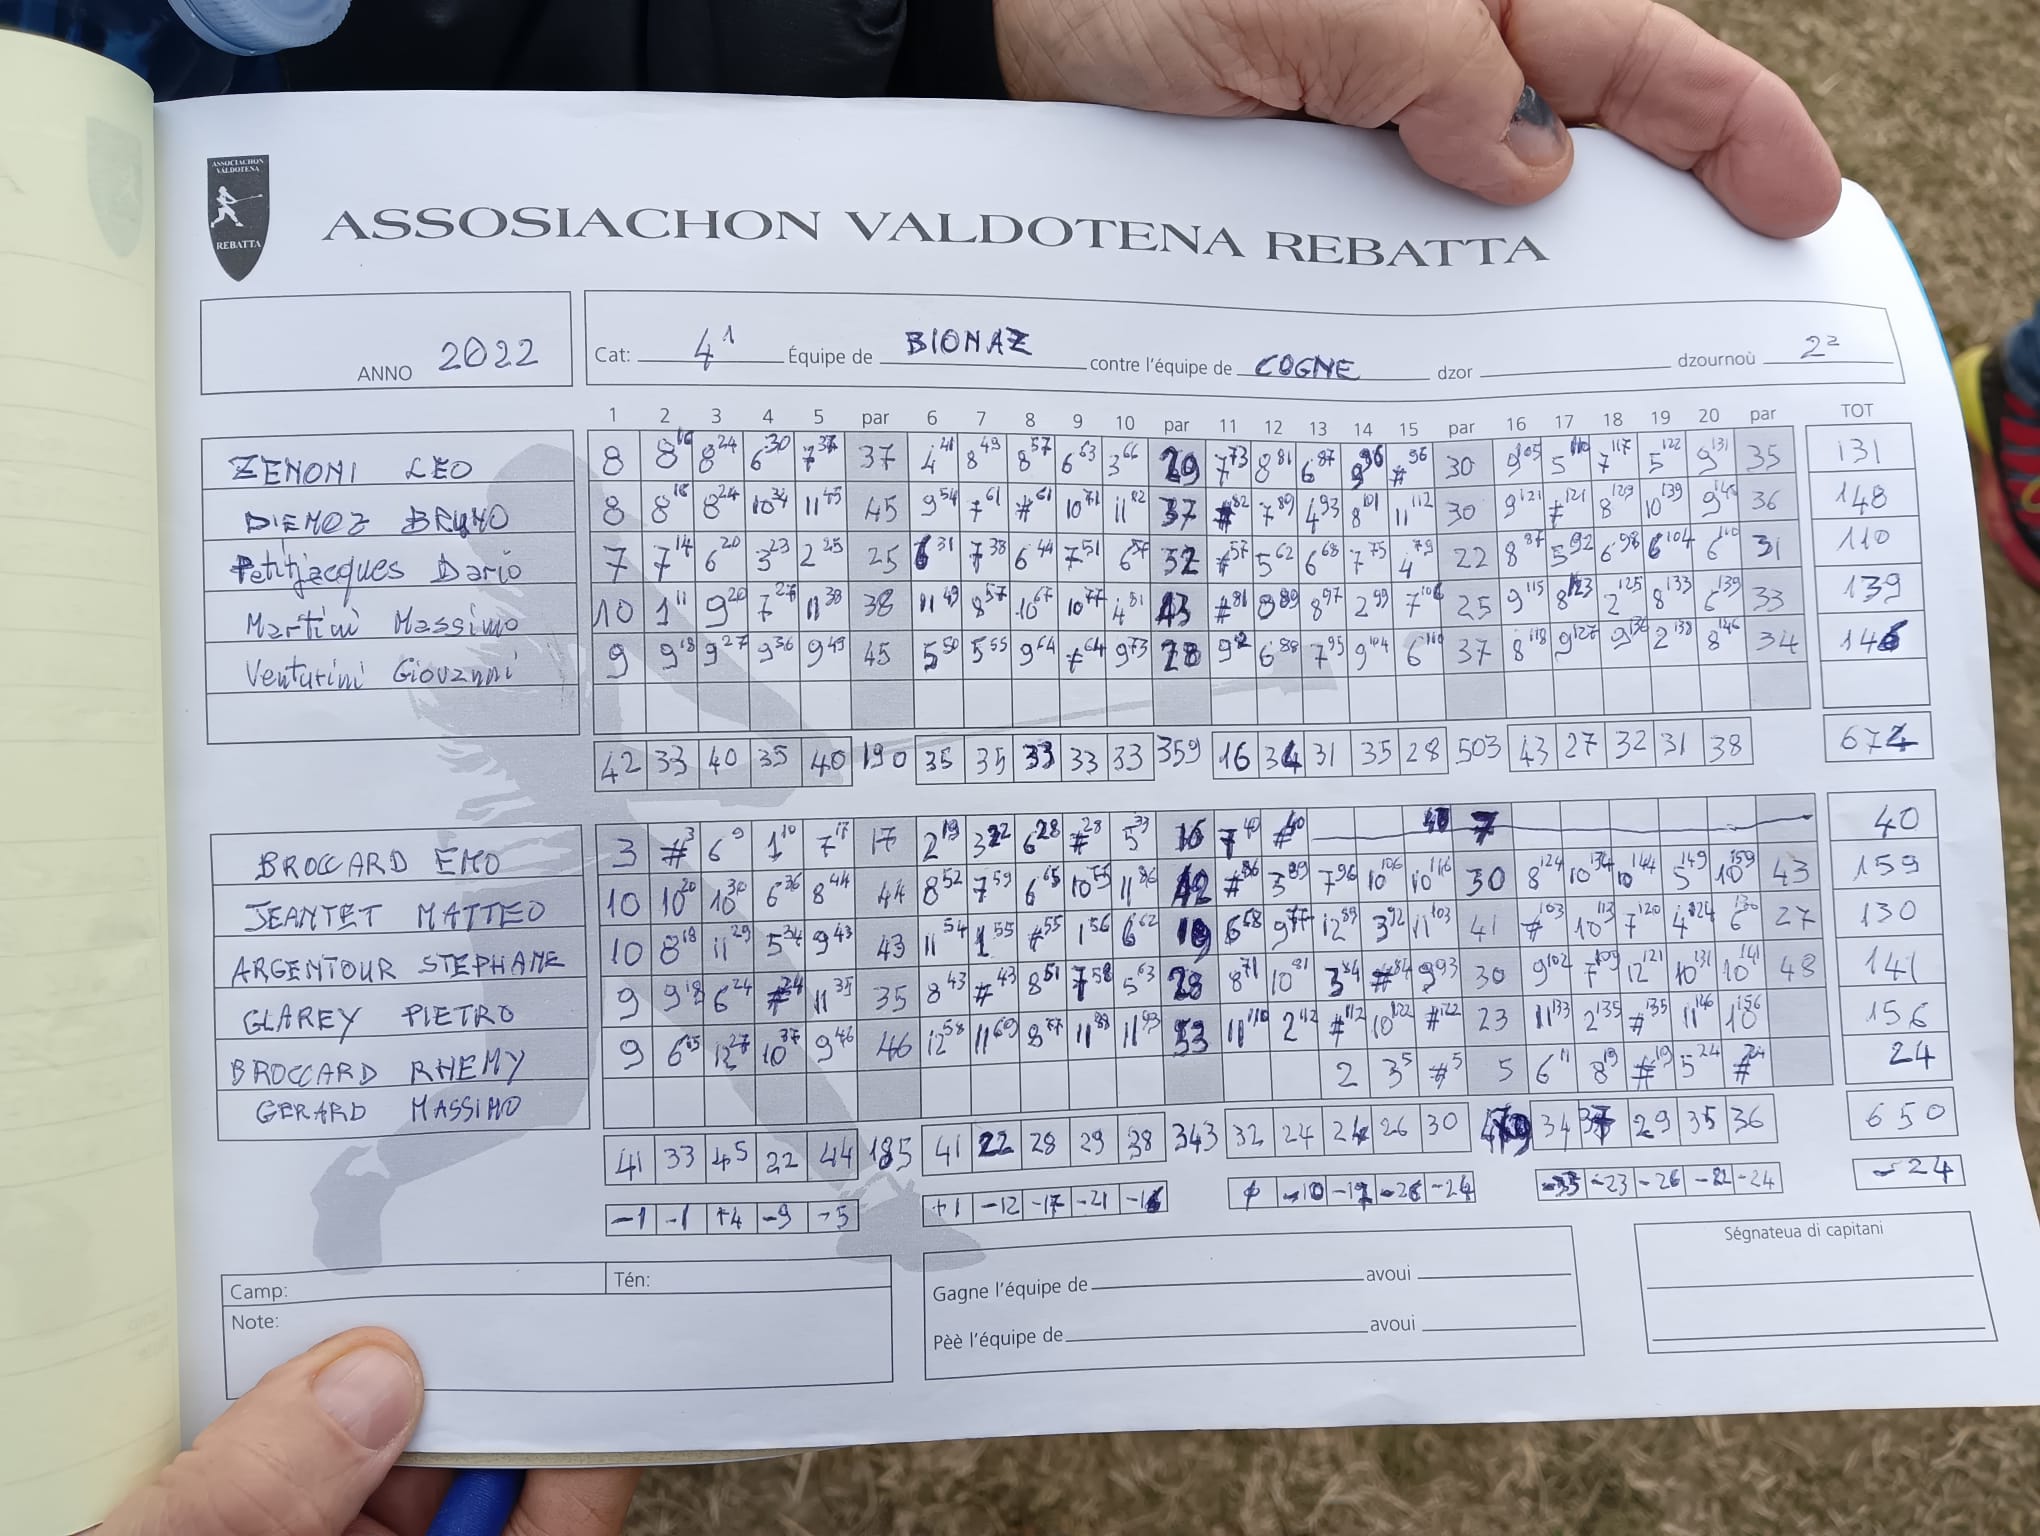 ASSOCIACHON
VALDOTENA
REBATTA
ASSOSIACHON VALDOTENA REBATTA
ANNO 2022
Cat: 4^1 Équipe de BIONAZ contre l'équipe de COGNE dzor dzournoù 2^2
1 2 3 4 5 par 6 7 8 9 10 par 11 12 13 14 15 par 16 17 18 19 20 par TOT
ZENONI LEO 8 8^16 8^24 6^30 7^37 37 4^41 8^49 8^57 6^63 3^66 29 7^73 8^81 6^87 9^96 #^96 30 9^105 5^110 7^117 5^122 9^131 35 131
DIEMOZ BRUNO 8 8^16 8^24 10^34 11^45 45 9^54 7^61 #^61 10^71 11^82 37 #^82 7^89 4^93 8^101 11^112 30 9^121 #^121 8^129 10^139 9^148 36 148
Petitjacques Dario 7 7^14 6^20 3^23 2^25 25 6^31 7^38 6^44 7^51 6^57 32 #^57 5^62 6^68 7^75 4^79 22 8^87 5^92 6^98 6^104 6^110 31 110
Martini Massimo 10 1^11 9^20 7^27 11^38 38 11^49 8^57 10^67 10^77 4^81 43 #^81 8^89 8^97 2^99 7^106 25 9^115 8^123 2^125 8^133 6^139 33 139
Venturini Giovanni 9 9^18 9^27 9^36 9^45 45 5^50 5^55 9^64 #^64 9^73 28 9^82 6^88 7^95 9^104 6^110 37 8^118 9^127 9^136 2^138 8^146 34 146
42 33 40 35 40 190 35 35 33 33 33 359 16 34 31 35 28 503 43 27 32 31 38 674
BROCCARD EMO 3 #^3 6^9 1^10 7^17 17 2^19 3^22 6^28 #^28 5^33 16 7^40 #^40 40 7 40
JEANTET MATTEO 10 10^20 10^30 6^36 8^44 44 8^52 7^59 6^65 10^75 11^86 42 #^86 3^89 7^96 10^106 10^116 30 8^124 10^134 10^144 5^149 10^159 43 159
ARGENTOUR STEPHANE 10 8^18 11^29 5^34 9^43 43 11^54 1^55 #^55 1^56 6^62 19 6^68 9^77 12^89 3^92 11^103 41 #^103 10^113 7^120 4^124 6^130 27 130
GLAREY PIETRO 9 9^18 6^24 #^24 11^35 35 8^43 #^43 8^51 7^58 5^63 28 8^71 10^81 3^84 #^84 9^93 30 9^102 7^109 12^121 10^131 10^141 48 141
BROCCARD RHEMY 9 6^15 12^27 10^37 9^46 46 12^58 11^69 8^77 11^88 11^99 53 11^110 2^112 #^112 10^122 #^122 23 11^133 2^135 #^135 11^146 10^156 156
GERARD MASSIMO 2 3^5 #^5 5 6^11 8^19 #^19 5^24 #^24 24
41 33 45 22 44 185 41 22 28 29 38 343 32 24 24 26 30 479 34 37 29 35 36 650
-1 -1 +4 -9 -5 +1 -12 -17 -21 -16 -10 -24 -23 -26 -22 -24 -24
Camp: Tén:
Note:
Gagne l'équipe de avoui
Pèè l'équipe de avoui
Ségnateua di capitani